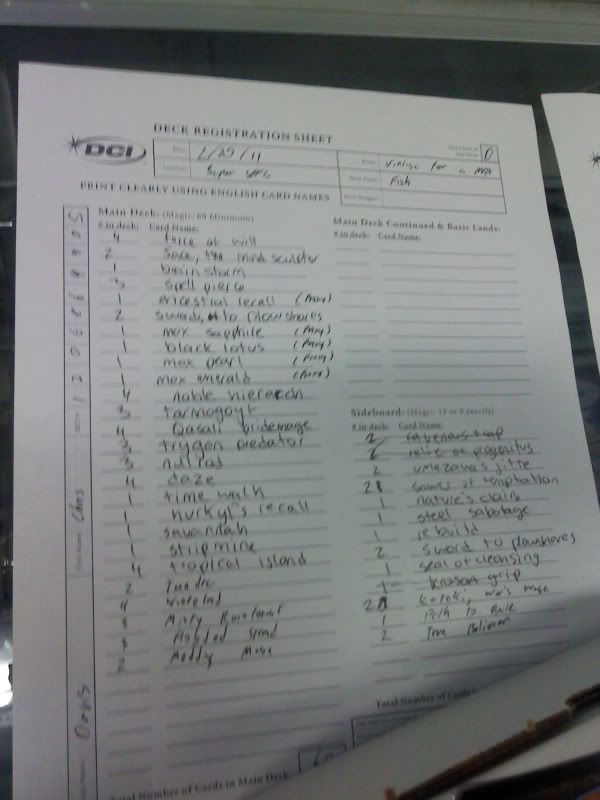 DECK REGISTRATION SHEET
DCI
Date:
Event: Vintage for a MOX
Location: Super
Deck Name: Fish
Deck Designer:
PRINT CLEARLY USING ENGLISH CARD NAMES
Main Deck: (Magic: 60 Minimum)
# in deck: Card Name:
4 force of will
2 Jace, the mind sculptor
1 brainstorm
3 spell pierce
1 ancestral recall (Proxy)
2 swords to plowshores
1 mox sapphile (Proxy)
1 black lotus (Proxy)
1 mox pearl (Proxy)
1 mox emerald (Proxy)
4 noble hierarch
3 tarmogoyf
4 Qasali pridemage
3 trygon predator
3 null rod
4 daze
1 time walk
1 hurkyl's recall
1 savannah
1 stripmine
4 tropical island
2 Tundra
4 Wasteland
Misty Rainforest
Flooded Strand
2 Meddling Mage
Total Number of Cards in Main Deck: 60
Main Deck Continued & Basic Lands:
# in deck: Card Name:
Sideboard: (Magic: 15 or 0 exactly)
# in deck: Card Name:
2 ravenous trap
2 relic of progenitus
2 umezawa's jitte
sower of temptation
1 nature's claim
1 steel sabotage
1 rebuild
2 sword to plowshores
1 seal of cleansing
krosan grip
kataki, war's wage
1 Path to Exile
2 True Believer
Total Number of Cards
Chris
Davis